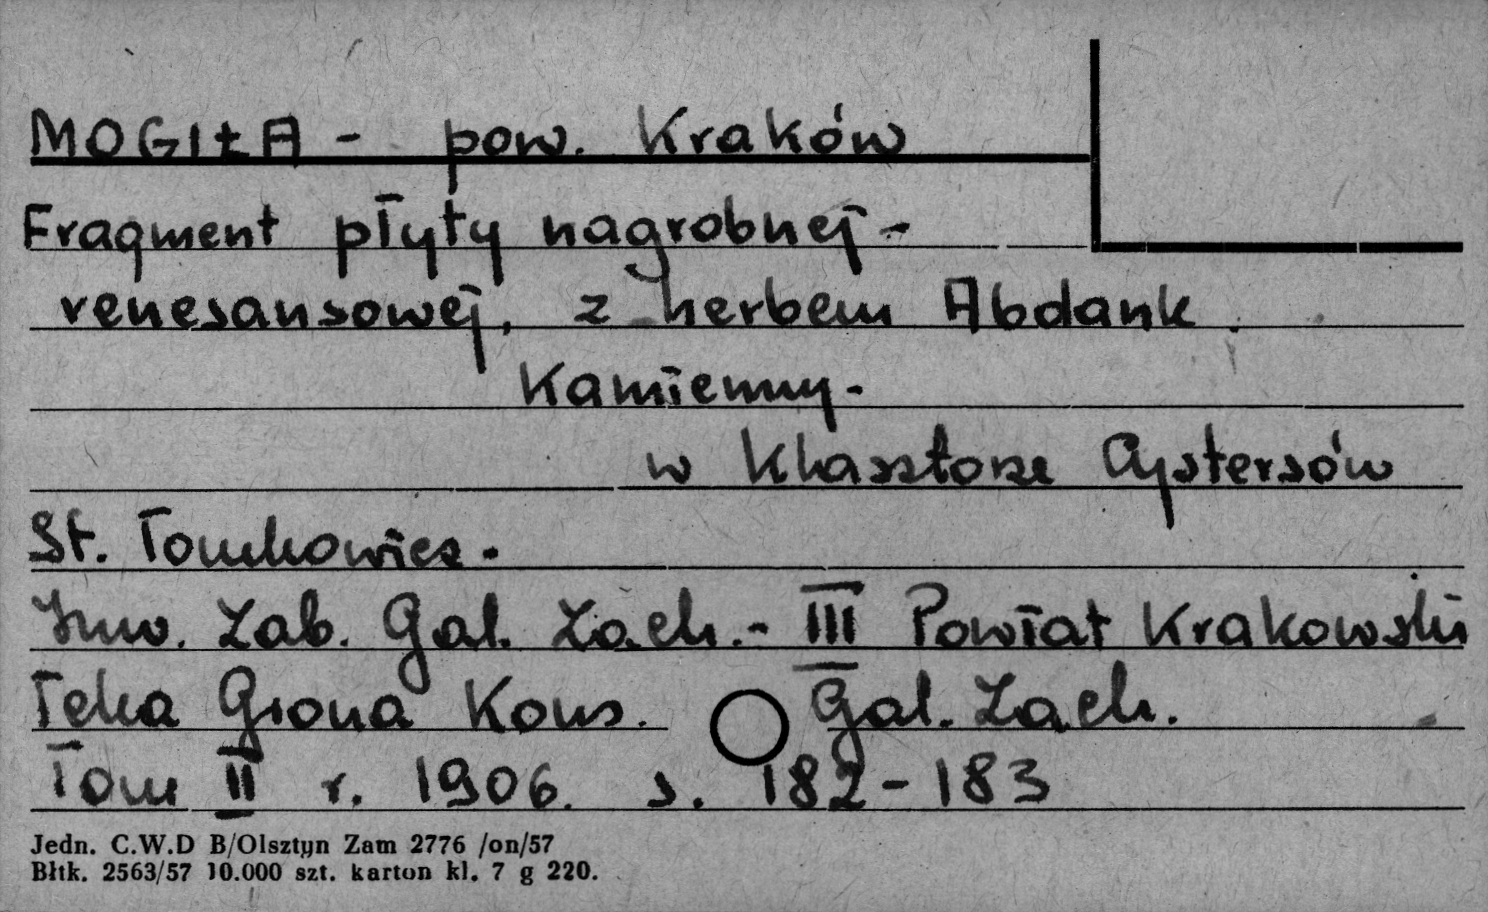 MOGIŁA - pow. Kraków
Fragment płyty nagrobnej -
renesansowej, z herbem Abdank.
Kamienny -
w klasztorze Cystersów
St. Tomkowicz.
Inw. Zab. Gal. Zach. - III Powiat Krakowski
Teka Grona Kons. Gal. Zach.
Tom II r. 1906. s. 182-183
Jedn. C.W.D B/Olsztyn Zam 2776 /on/57
Błtk. 2563/57 10.000 szt. karton kl. 7 g 220.